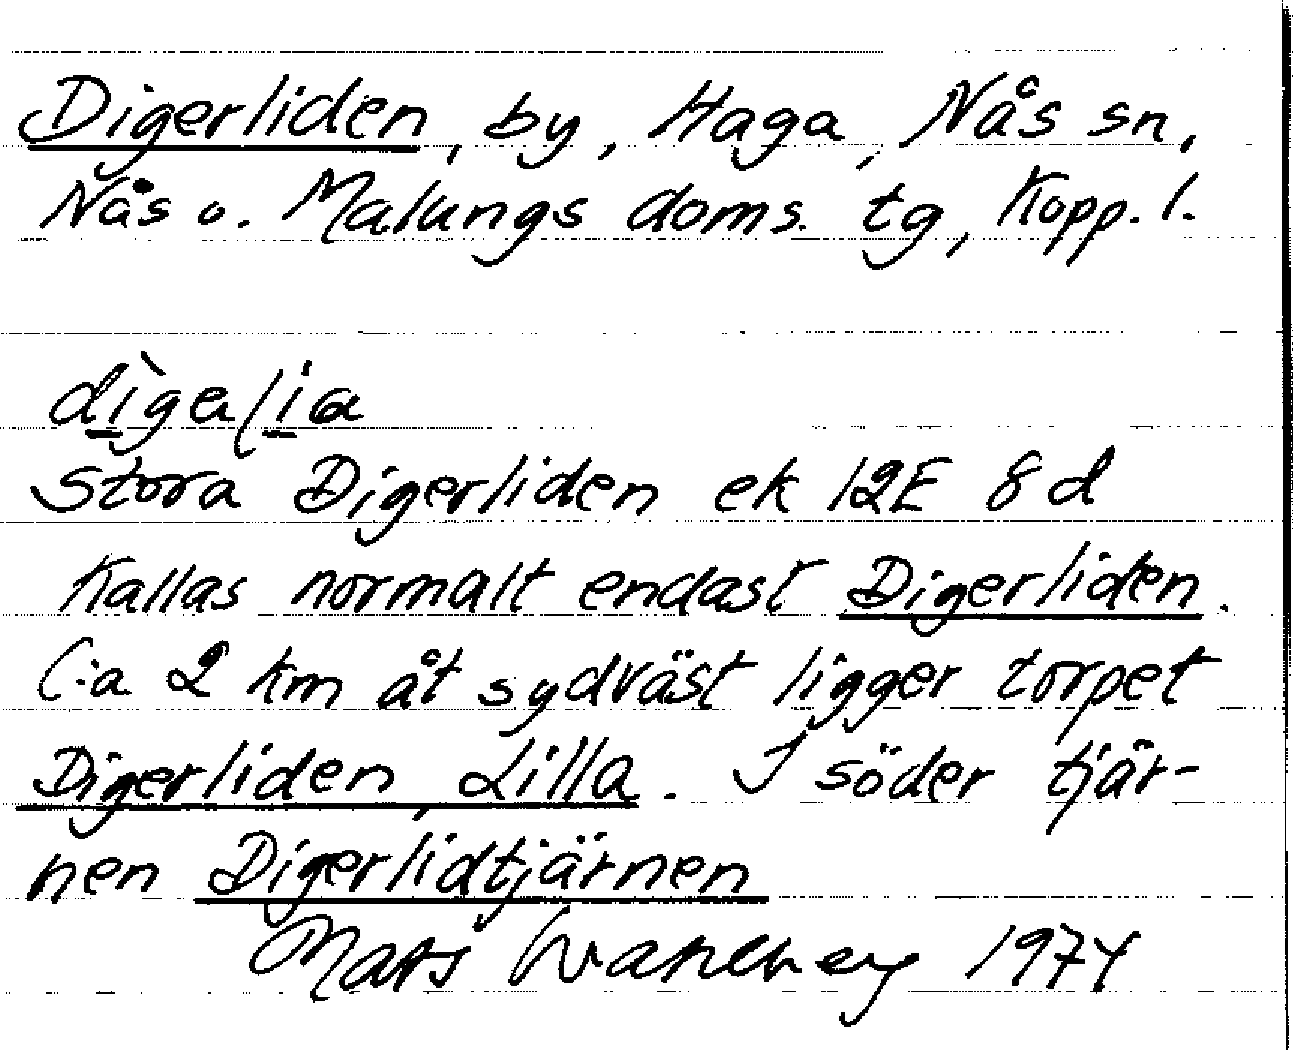 Digerliden, by, Haga, Nås sn,
Nås o. Malungs doms. tg, Kopp. l.
Stora Digerliden ek 12E 8d
Kallas normalt endast Digerliden.
C:a 2 km åt sydväst ligger torpet
Digerliden, Lilla. I söder tjär-
nen Digerlidtjärnen
Mats Wahlberg 1974